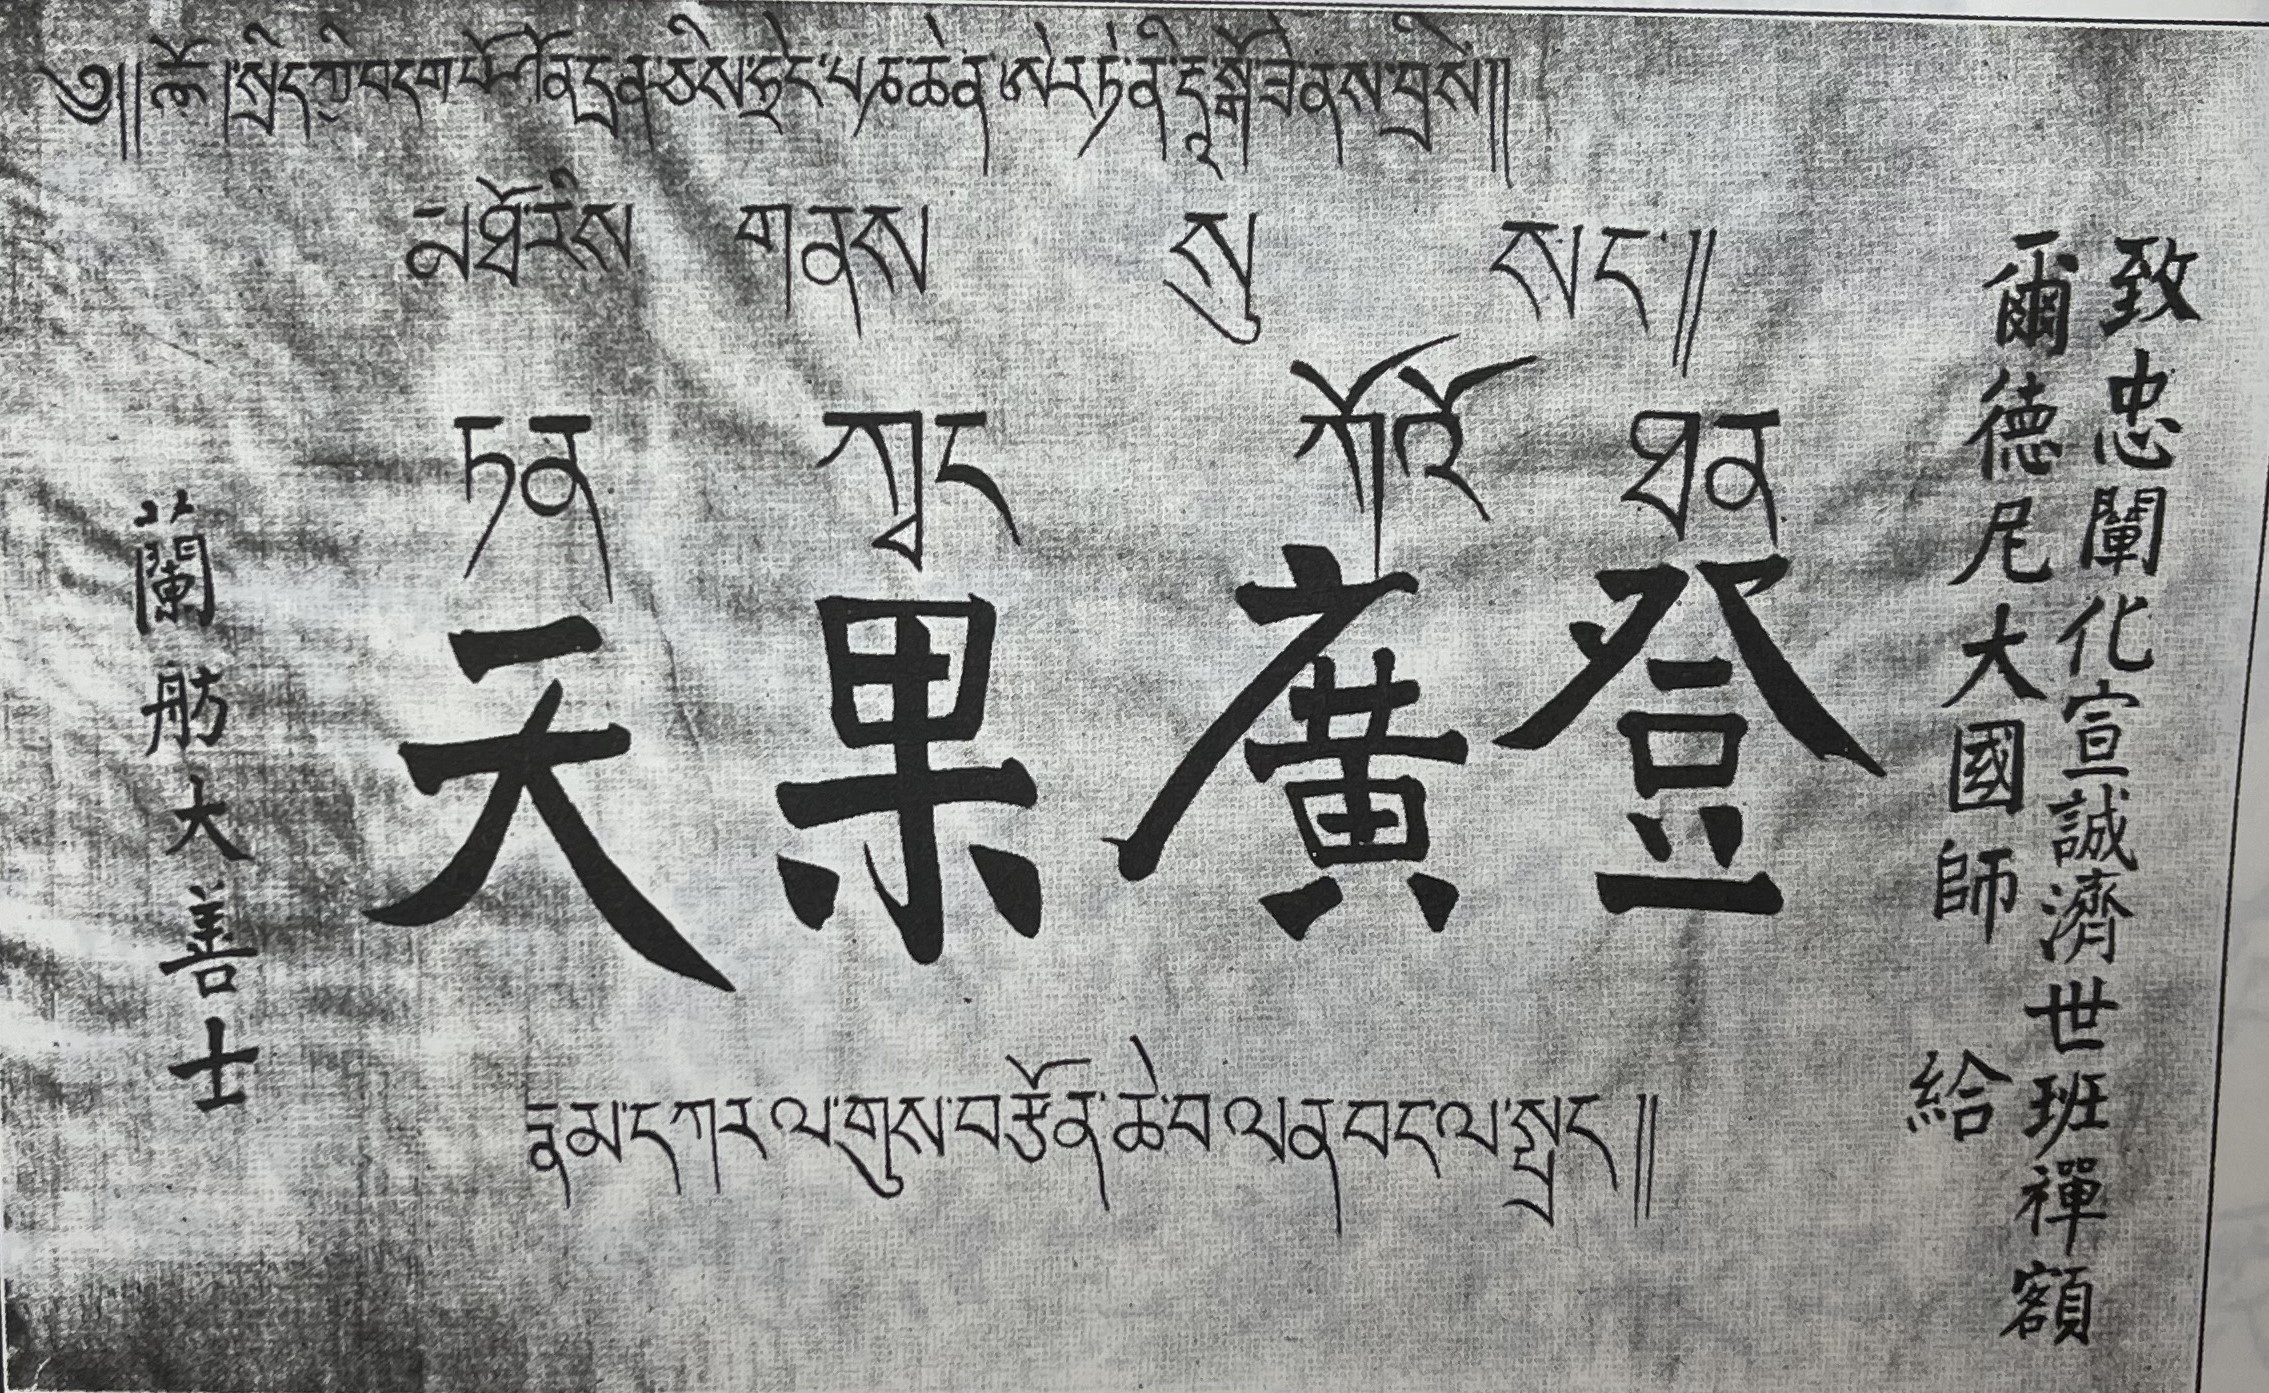 པཎ་ཆེན་
མཐོ་རིས གནས སུ སང༎
ཏན ཀྭང ཀོའོ ཐན
致忠闡化宣誠濟世班禪額
爾德尼大國師 給
登廣果天
蘭舫大善士
རྣམ་དཀར་ལ་གུས་བརྩོན་ཆེ་བ་ལན་བང་ལ་སྤྲད༎